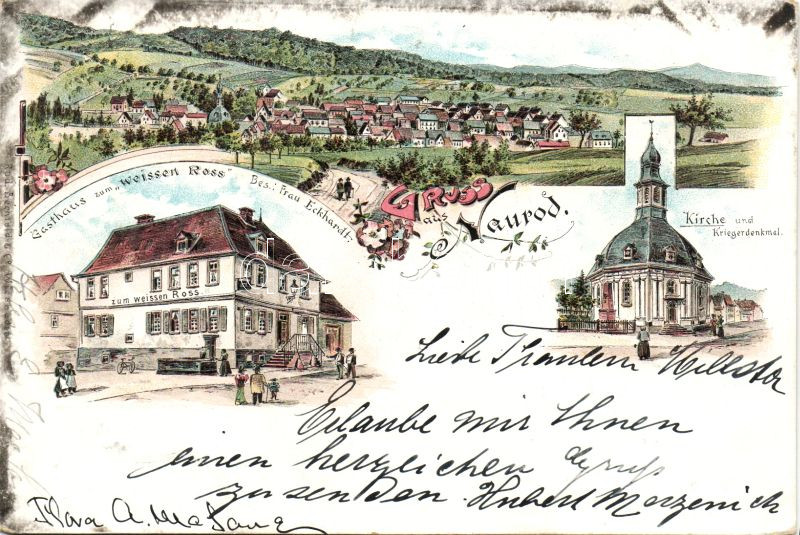 Gasthaus zum "weissen Ross" Bes.: Frau Eckhardt.
Gruss
aus
Naurod.
Kirche und
Kriegerdenkmal.
zum weissen Ross
Liebe Fraulein Hillster
Erlaube mir Ihnen
einen herzlichen Gruss
zu senden. Hubert Merzenich
Flora A.